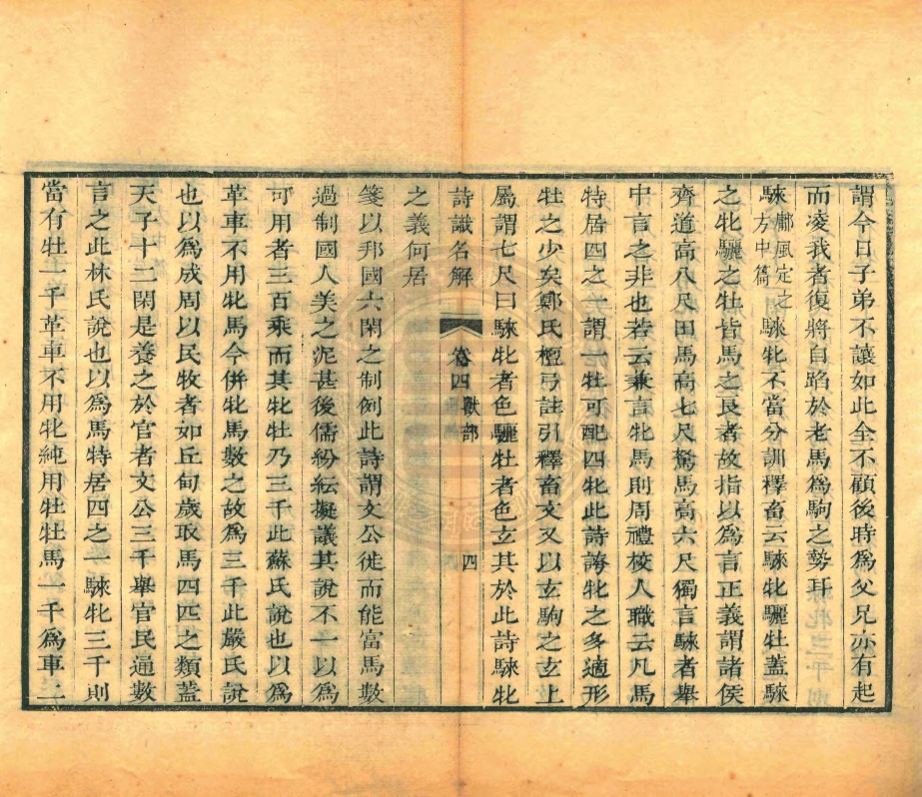 謂今日子弟不讓如此全不顧後時為父兄亦有起
而凌我者復將自蹈於老馬為駒之勢耳
騋鄘風定之方中篇騋牝不當分訓釋畜云騋牝驪牡蓋騋
之牝驪之牡皆馬之良者故指以為言正義謂諸侯
齊道高八尺田馬高七尺駑馬高六尺獨言騋者舉
中言之非也若云兼言牝馬則周禮校人職云凡馬
特居四之一謂一牡可配四牝此詩誇牝之多適形
牡之少矣鄭氏檀弓註引釋畜文又以玄駒之玄上
屬謂七尺曰騋牝者色驪牡者色玄其於此詩騋牝
詩識名解 卷四獸部 四
之義何居
箋以邦國六閑之制例此詩謂文公徙而能富馬數
過制國人美之泥甚後儒紛紜擬議其說不一以為
可用者三百乘而其牝牡乃三千此蘇氏說也以為
革車不用牝馬今併牝馬數之故為三千此嚴氏說
也以為成周以民牧者如丘甸歲取馬四匹之類蓋
天子十二閑是養之於官者文公三千舉官民通數
言之此林氏說也以為馬特居四之一騋牝三千則
當有牡一千革車不用牝純用牡牡馬一千為車二